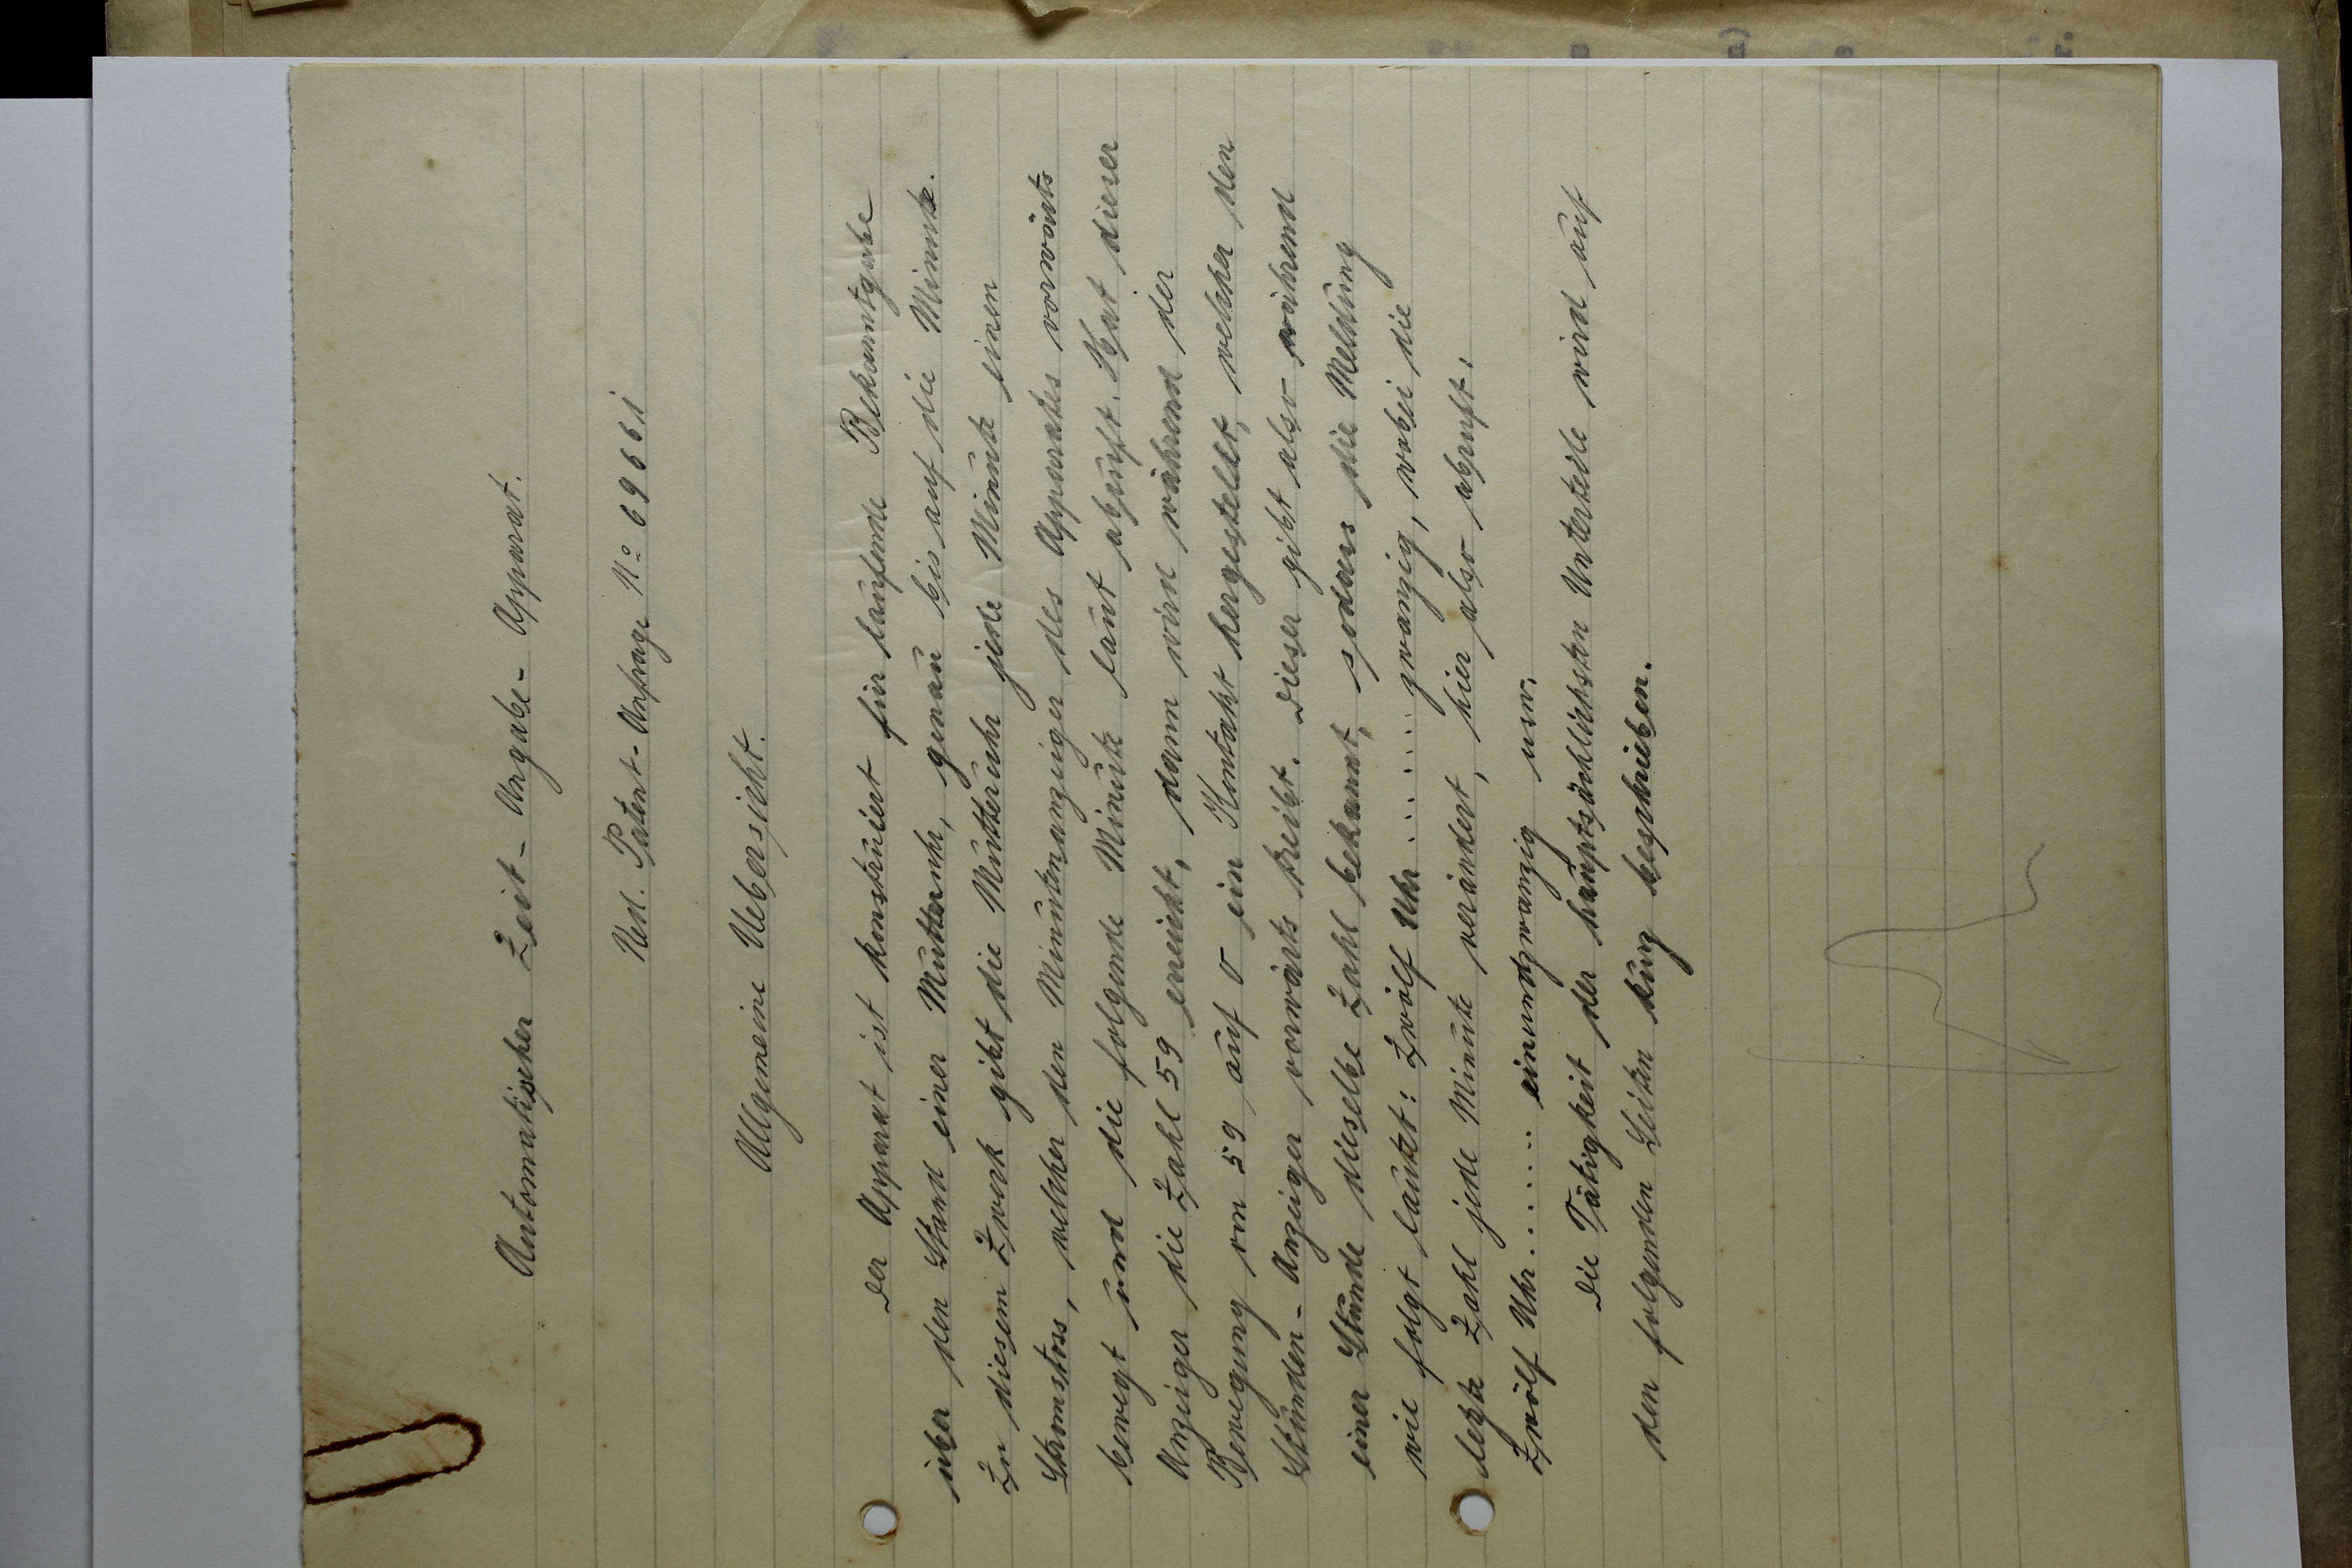 Automatischer Zeit-Angabe-Apparat.
Ned. Patent-Anfrage No 69661
Allgemeine Uebersicht.
Der Apparat ist konstruiert für laufende Bekanntgabe
über den Stand einer Mutteruhr, genau bis auf die Minute.
Zu diesem Zweck gibt die Mutteruhr jede Minute einen
Stromstoss, welcher den Minutenanzeiger des Apparates vorwärts
bewegt und die folgende Minute laut abruft. Hat dieser
Anzeiger die Zahl 59 erreicht, dann wird während der
Bewegung von 59 auf 0 ein Kontakt hergestellt, welcher den
Stunden-Anzeiger vorwärts treibt. Dieser gibt also während
einer Stunde dieselbe Zahl bekannt, sodass die Meldung
wie folgt lautet: Zwölf Uhr ........ zwanzig, wobei die
letzte Zahl jede Minute verändert, hier also abruft:
Zwölf Uhr........ einundzwanzig usw.
Die Tätigkeit der hauptsächlichsten Unterteile wird auf
den folgenden Seiten kurz beschrieben.